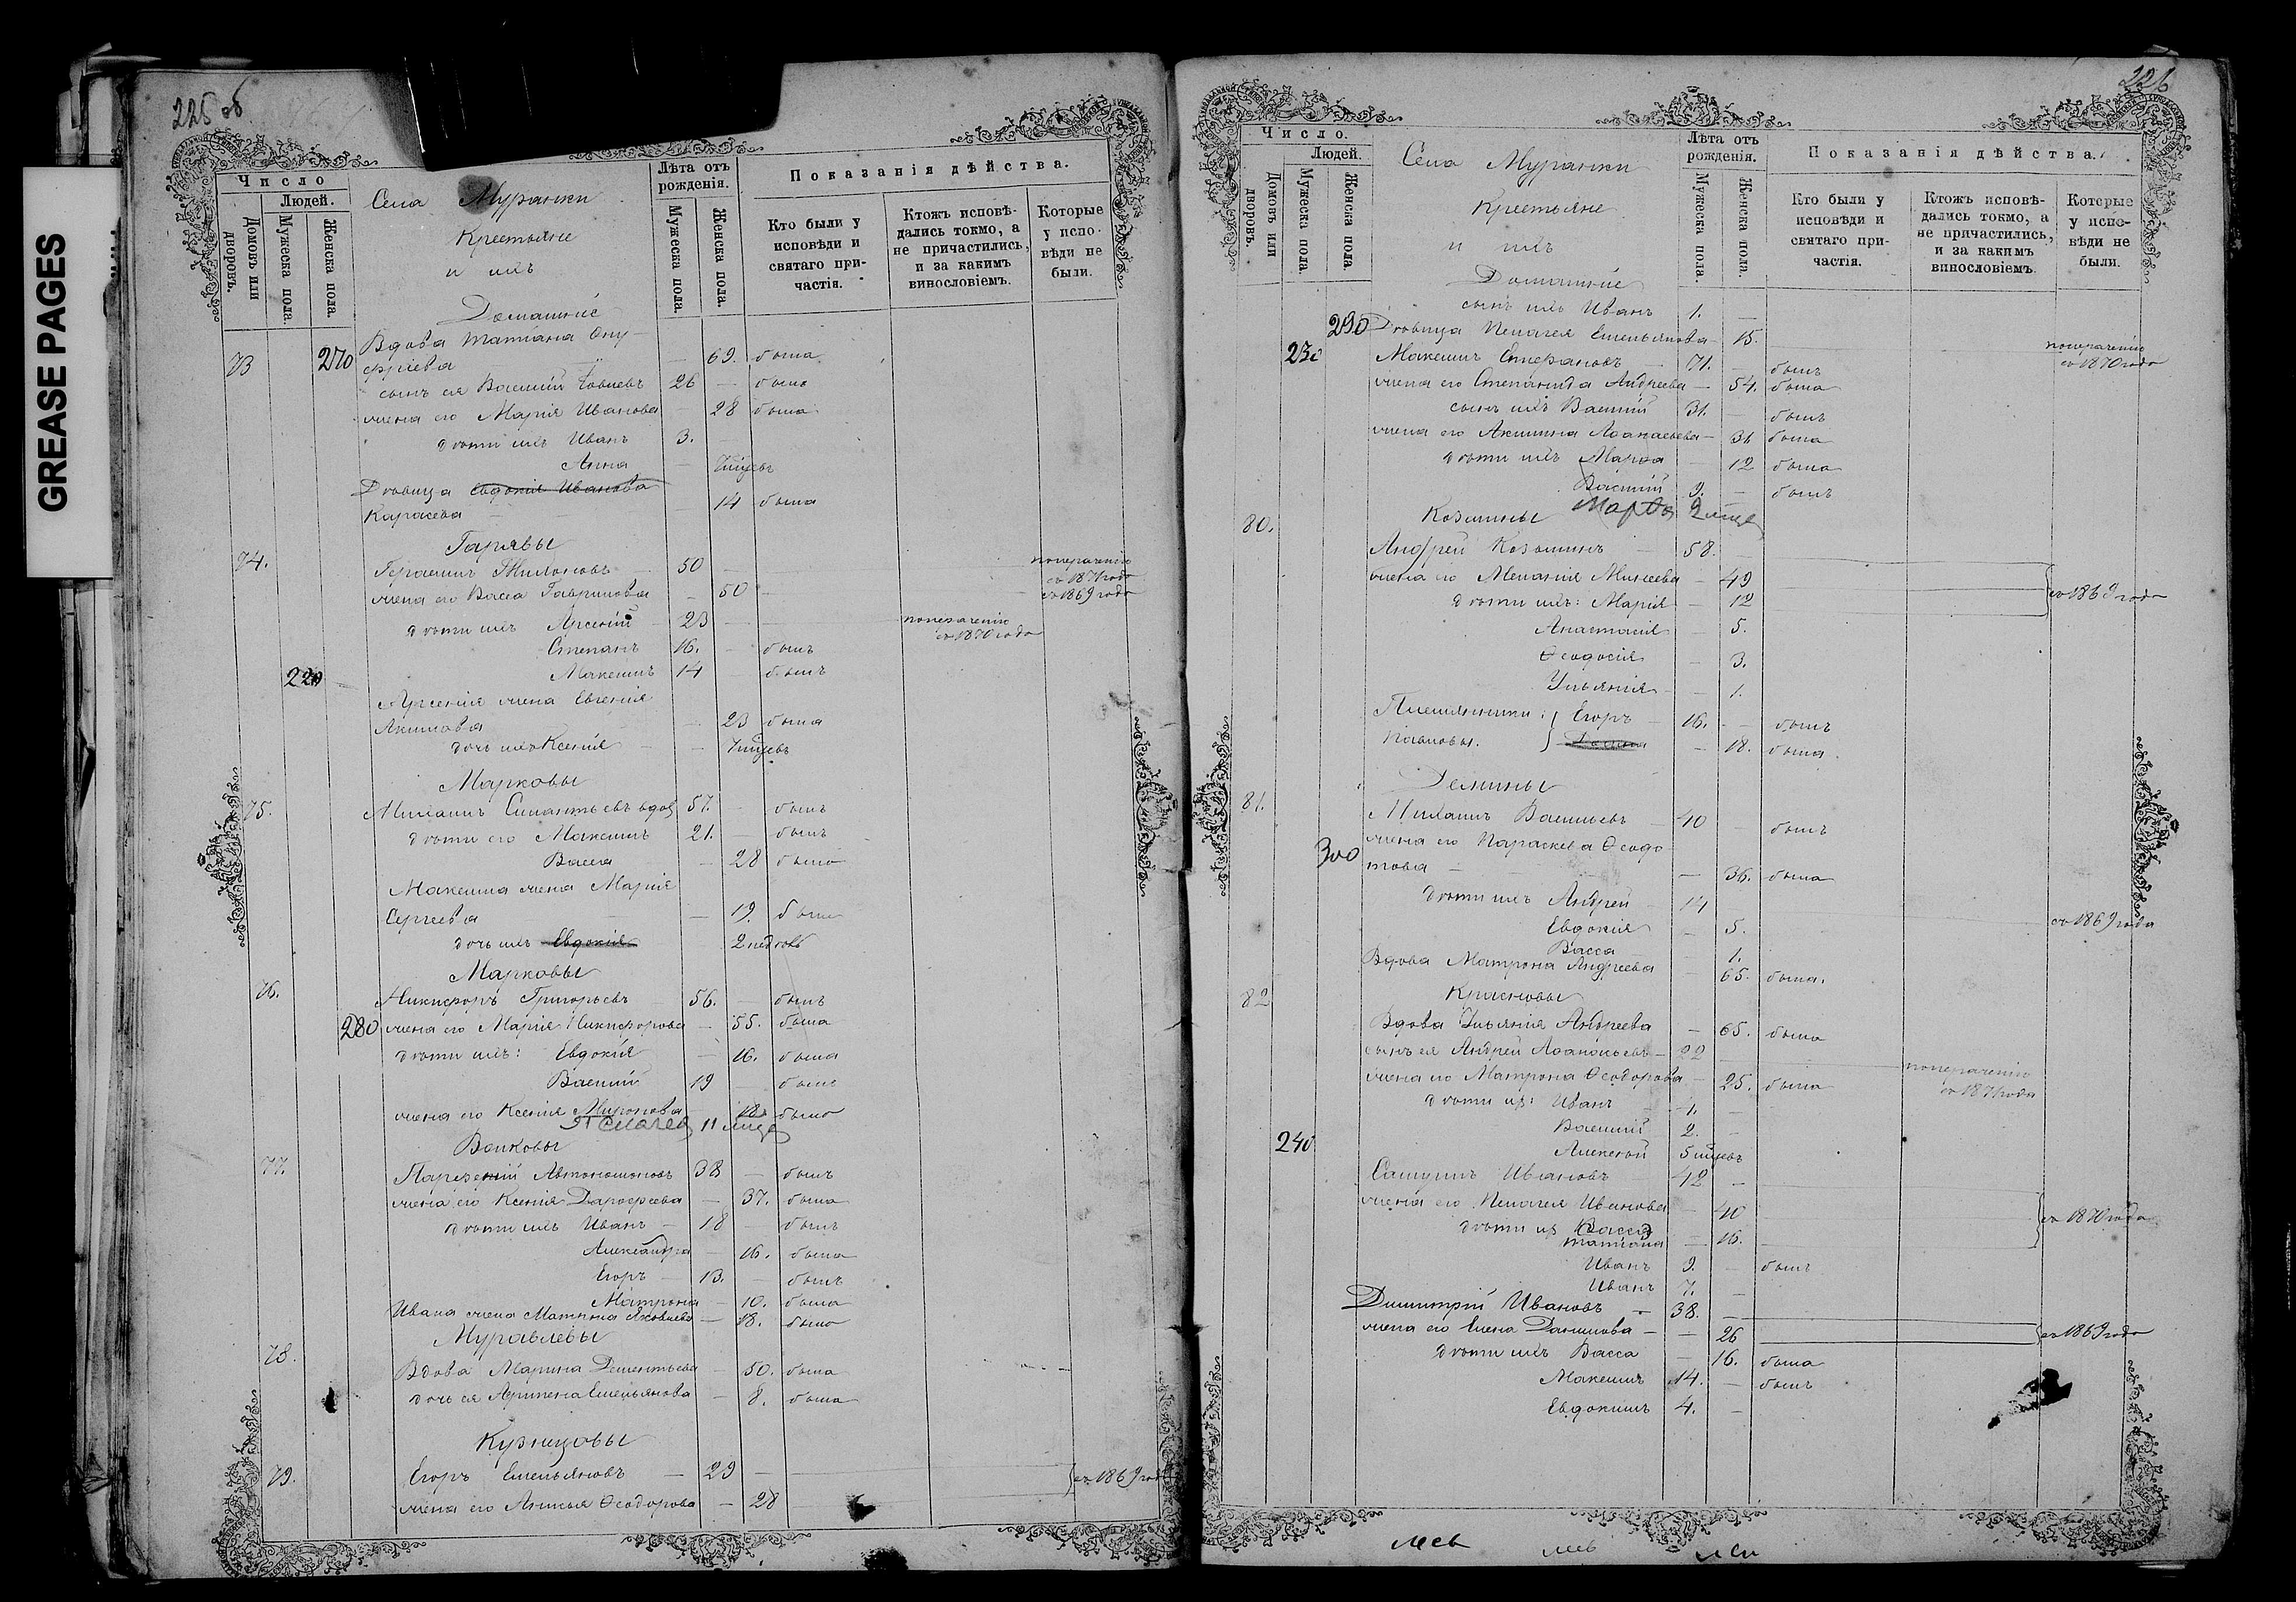 GREASE PAGES
225 об
Число
Людей.
Домовъ или дворовъ.
Мужеска пола.
Женска пола.
Села Муранки
Крестьяне
и ихъ
Домашніе
Лѣта отъ рожденія.
Мужеска пола.
Женска пола.
Показанія дѣйства.
Кто были у исповѣди и святаго при-частія.
Ктожъ исповѣ-дались токмо, а не причастились, и за какимъ винословіемъ.
Которые у испо-вѣди не были.
73 270 Вдова Татіана Ону-
фріева — 69. была
сынъ ея Василій Іовлевъ 26 — былъ
жена его Марія Иванова — 28 была
дѣти ихъ Иванъ 3. —
Анна — 7 мѣсцевъ
Дѣвица Евдокія Иванова
Карасева 14 была
74. Гаряевы
Герасимъ 50 — по нераченію съ 1871 года
жена его Васса Гаврилова — 50 — съ 1869 года
дѣти ихъ Арсеній 23 — по нераченію съ 1870 года
Степанъ 16. — былъ
220 Максимъ 14 былъ
Арсенія жена Евгенія
Акимова — 23 была
дочь ихъ Ксенія — 7 мѣсцевъ
Марковы
75. вдов 57. — былъ
дѣти его Максимъ 21. — былъ
Васса — 28 была
Максима жена Марія
Сергеева — 19. была
дочь ихъ Евдокія 2 недѣль
Марковы
76. Никифоръ Григорьевъ — 56. — былъ
280 жена его Марія Никифорова — 55. была
дѣти ихъ: Евдокія — 16. была
Василій 19 — былъ
жена его Ксенія Миронова 18 была
Пелагея 11 мѣсце
Волковы
77. Парфеній Автономовъ 38 — былъ
жена его Ксенія Дорофеева — 37. была
дѣти ихъ Иванъ — 18 — былъ
Александра — 16. была
Егоръ — 13. — былъ
Матрона — 10. была
Ивана жена Матрона Яковлева — 18. была
Муравлевы
78. Вдова Марина Дементьева — 50. была
дочь ея Аграфена Емельянова — 8. была
Кузнецовы
79. Егоръ Емельяновъ — 29 — съ 1869 года
жена его Анисья Ѳеодорова — 28
226
Число.
Людей.
Домовъ или дворовъ.
Мужеска пола.
Женска пола.
Села Муранки
Крестьяне
и ихъ
Домашніе
Лѣта отъ рожденія.
Мужеска пола.
Женска пола.
Показанія дѣйства.
Кто были у исповѣди и святаго при-частія.
Ктожъ исповѣ-дались токмо, а не причастились, и за какимъ винословіемъ.
Которые у испо-вѣди не были.
сынъ ихъ Иванъ 1. —
290 Дѣвица Пелагея Емельянова — 15. по нераченію съ 1870 года
230 Максимъ Стефановъ — 71. — былъ
жена его Степанида Андреева — 54. была
сынъ ихъ Василій 31. — былъ
жена его Акилина Аѳанасьева — 31 была
дѣти ихъ Марѳа — 12 была
Василій 9. — былъ
Марѳа 2 мѣсце
80. Козьмины
Андрей Козьминъ — 58. —
жена его Меланія Моисеева — 49 съ 1869 года
дѣти ихъ: Марія — 12
Анастасія — 5.
Ѳеодосія — 3.
Ульянія — 1.
Племянники: Егоръ — 16. — былъ
Павловы. — 18. была.
Демины
81. Василь­евъ — 40 былъ
300 жена его Параскева Ѳеодо-
това — 36. была
дѣти ихъ Андрей — 14
Евдокія — 5. съ 1869 года
Васса — 1.
Вдова Матрона Андреева — 65. была.
82 Красновы
Вдова Ульянія Андреева — 65. была
сынъ ея Андрей — 22 по нераченію съ 1871 года
жена его Матрона Ѳеодорова — 25. была
дѣти их: Иванъ — 1. —
Василій 2. —
240 Алексѣй 5 мѣсцевъ
Иванов — 42 —
жена его Пелагея Иванова — 40 съ 1870 года
дѣти их Васса
Татіана — 16.
Иванъ 9. — былъ
Иванъ 7. —
Димитрій Ивановъ — 38. —
жена его Елена Данилова — 26 съ 1869 года
дѣти ихъ Васса — 16. была
Максимъ 14. — былъ
Евдокимъ 4. —